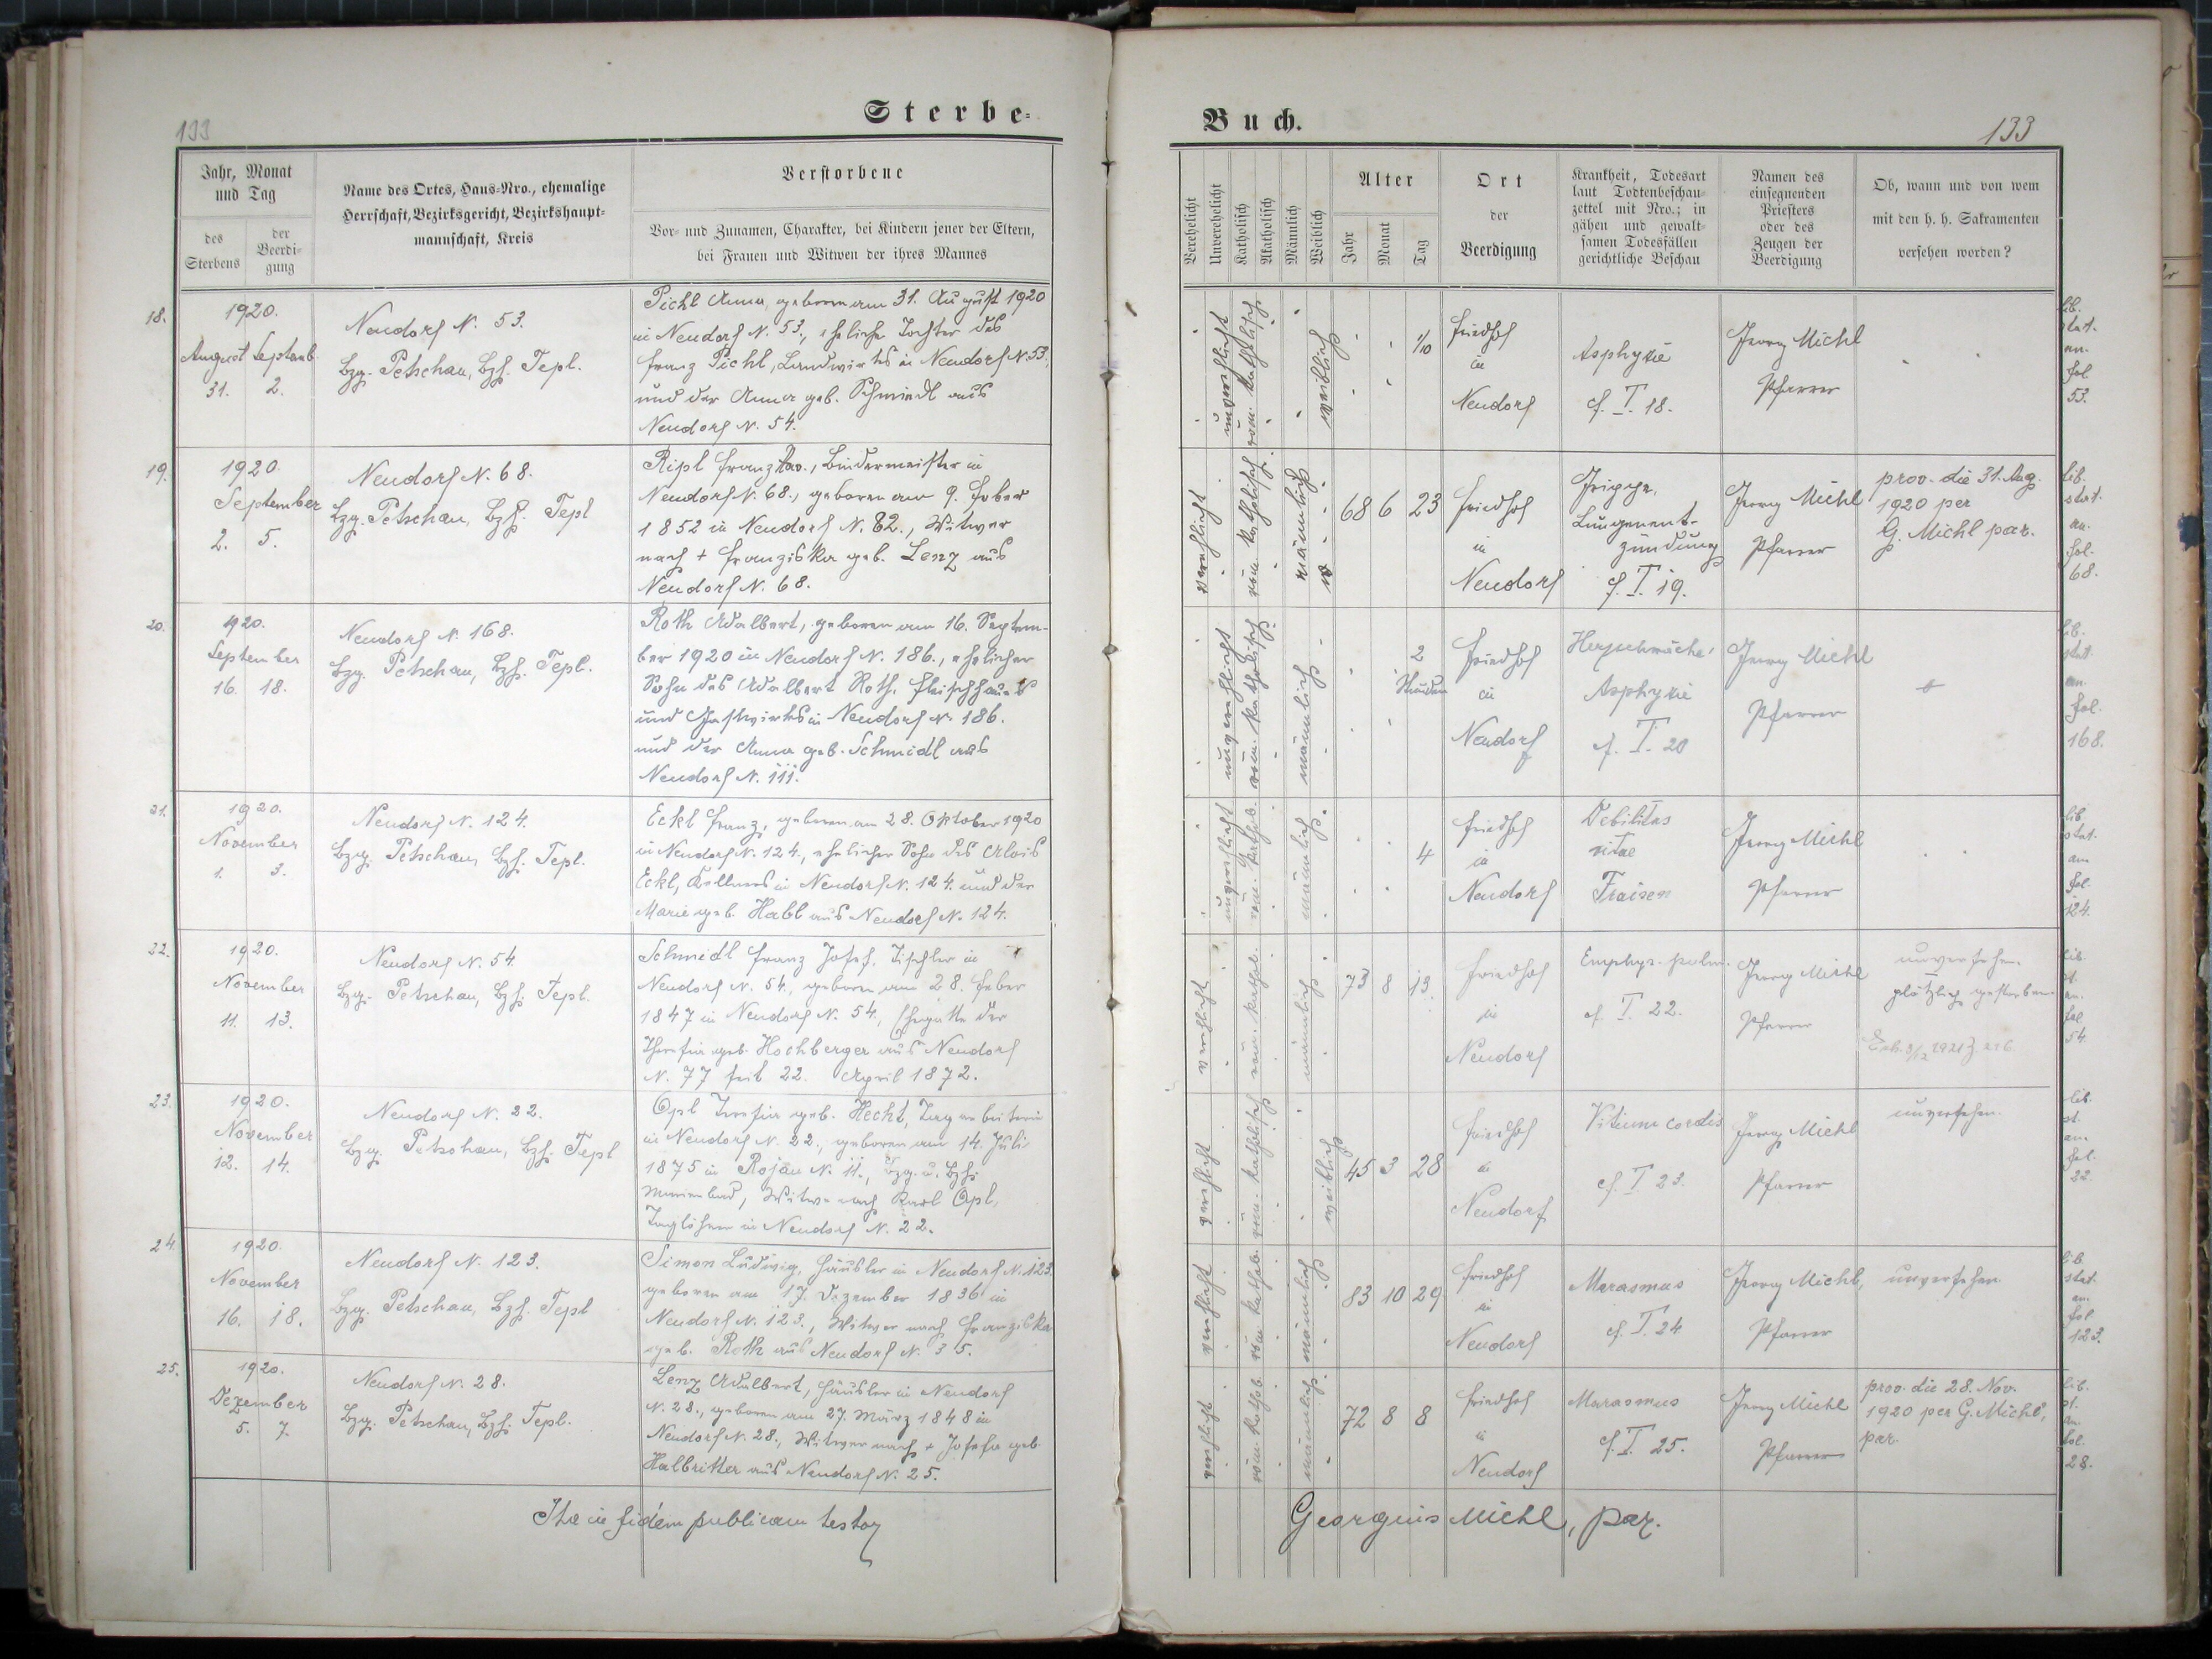 Sterbe-
133
Jahr, Monat
und Tag
des
Sterbens
der
Beerdi-
gung
Name des Ortes, Haus-Nro., ehemalige
Herrschaft, Bezirksgericht, Bezirkshaupt-
mannschaft, Kreis
Verstorbene
Vor- und Zunamen, Charakter, bei Kindern jener der Eltern,
bei Frauen und Witwen der ihres Mannes
18.
1920.
August Septemb.
31. 2.
Neudorf N. 53.
Bzg. Petschau, Bzh. Tepl.
Pichl Anna, geboren am 31. August 1920
in Neudorf N. 53., eheliche Tochter des
Franz Pichl, Landwirtes in Neudorf N. 53.,
und der Anna geb. Schmiedl aus
Neudorf N. 54.
19.
1920.
September
2. 5.
Neudorf N. 68.
Bzg. Petschau, Bzh. Tepl
Ripl Franz Xav., Bindermeister in
Neudorf N. 68., geboren am 9. Feber
1852 in Neudorf N. 82., Witwer
nach + Franziska geb. Lenz aus
Neudorf N. 68.
20.
1920.
September
16. 18.
Neudorf N. 168.
Bzg. Petschau, Bzh. Tepl.
Roth Adalbert, geboren am 16. Septem-
ber 1920 in Neudorf N. 186., ehelicher
Sohn des Adalbert Roth, Fleischhauers
und Gastwirtes in Neudorf N. 186.
und der Anna geb. Schmidl aus
Neudorf N. 111.
21.
1920.
November
1. 3.
Neudorf N. 124.
Bzg. Petschau, Bzh. Tepl.
Eckl Franz, geboren am 28. Oktober 1920
in Neudorf N. 124., ehelicher Sohn des Alois
Eckl, Kellners in Neudorf N. 124. und der
Marie geb. Habl aus Neudorf N. 124.
22.
1920.
November
11. 13.
Neudorf N. 54.
Bzg. Petschau, Bzh. Tepl.
Schmidl Franz Josef, Tischler in
Neudorf N. 54., geboren am 28. Feber
1847 in Neudorf N. 54., Ehegatte der
Theresia geb. Hochberger aus Neudorf
N. 77 seit 22. April 1872.
23.
1920.
November
12. 14.
Neudorf N. 22.
Bzg. Petschau, Bzh. Tepl
Opl Theresia geb. Hecht, Tagarbeiterin
in Neudorf N. 22., geboren am 14. Juli
1875 in Rojau N. 11., Bzg. u. Bzh.
Marienbad, Witwe nach Karl Opl,
Taglöhner in Neudorf N. 22.
24.
1920.
November
16. 18.
Neudorf N. 123.
Bzg. Petschau, Bzh. Tepl
Simon Ludwig, Häusler in Neudorf N. 123.
geboren am 17. Dezember 1836 in
Neudorf N. 123., Witwer nach Franziska
geb. Roth aus Neudorf N. 35.
25.
1920.
Dezember
5. 7.
Neudorf N. 28.
Bzg. Petschau, Bzh. Tepl.
Lenz Adalbert, Häusler in Neudorf
N. 28., geboren am 27. März 1848 in
Neudorf N. 28., Witwer nach + Josefa geb.
Halbritter aus Neudorf N. 25.
Ita in fidem publicam testor
Buch.
133
Verehelicht
Unverehelicht
Katholisch
Akatholisch
Männlich
Weiblich
Alter
Jahr
Monat
Tag
Ort
der
Beerdigung
Krankheit, Todesart
laut Todtenbeschau-
zettel mit Nro.; in
gähen und gewalt-
samen Todesfällen
gerichtliche Beschau
Namen des
einsegnenden
Priesters
oder des
Zeugen der
Beerdigung
Ob, wann und von wem
mit den h. h. Sakramenten
versehen worden?
unverehlicht
röm. katholisch
weiblich
1/10
Friedhof
in
Neudorf
Asphyxie
cf. T. 18.
Georg Michl
Pfarrer
lib.
stat.
an.
fol.
53.
verehlicht
röm. katholisch
männlich
68 6 23
Friedhof
in
Neudorf
Grippe,
Lungenent-
zündung
cf. T. 19.
Georg Michl
Pfarrer
prov. die 31. Aug.
1920 per
G. Michl par.
lib.
stat.
an.
fol.
68.
unverehlicht
röm. katholisch
männlich
2
Stunden
Friedhof
in
Neudorf
Herzschwäche,
Asphyxie
cf. T. 20
Georg Michl
Pfarrer
lib.
stat.
an.
fol.
168.
unverehlicht
röm. kathol.
männlich
4
Friedhof
in
Neudorf
Debilitas
vitae
Fraisen
Georg Michl
Pfarrer
lib.
stat.
an.
fol.
124.
verehlicht
röm. kathol.
männlich
73 8 13.
Friedhof
in
Neudorf
Emphys. pulm.
cf. T. 22.
Georg Michl
Pfarrer
unversehen.
plötzlich gestorben.
lib.
st.
an.
fol
54.
verehlicht
röm. katholisch
weiblich
45 3 28
Friedhof
in
Neudorf
Vitium cordis
cf. T. 23.
Georg Michl
Pfarrer
unversehen.
lib.
st.
an.
fol.
22.
verehlicht
röm. kathol.
männlich
83 10 29
Friedhof
in
Neudorf
Marasmus
cf. T. 24
Georg Michl,
Pfarrer
unversehen.
lib.
stat.
an.
fol
123.
verehlicht
röm. kathol.
männlich
72 8 8
Friedhof
in
Neudorf
Marasmus
cf. T. 25.
Georg Michl
Pfarrer
prov. die 28. Nov.
1920 per G. Michl,
par.
lib.
st.
an.
fol.
28.
Georgius Michl, par.